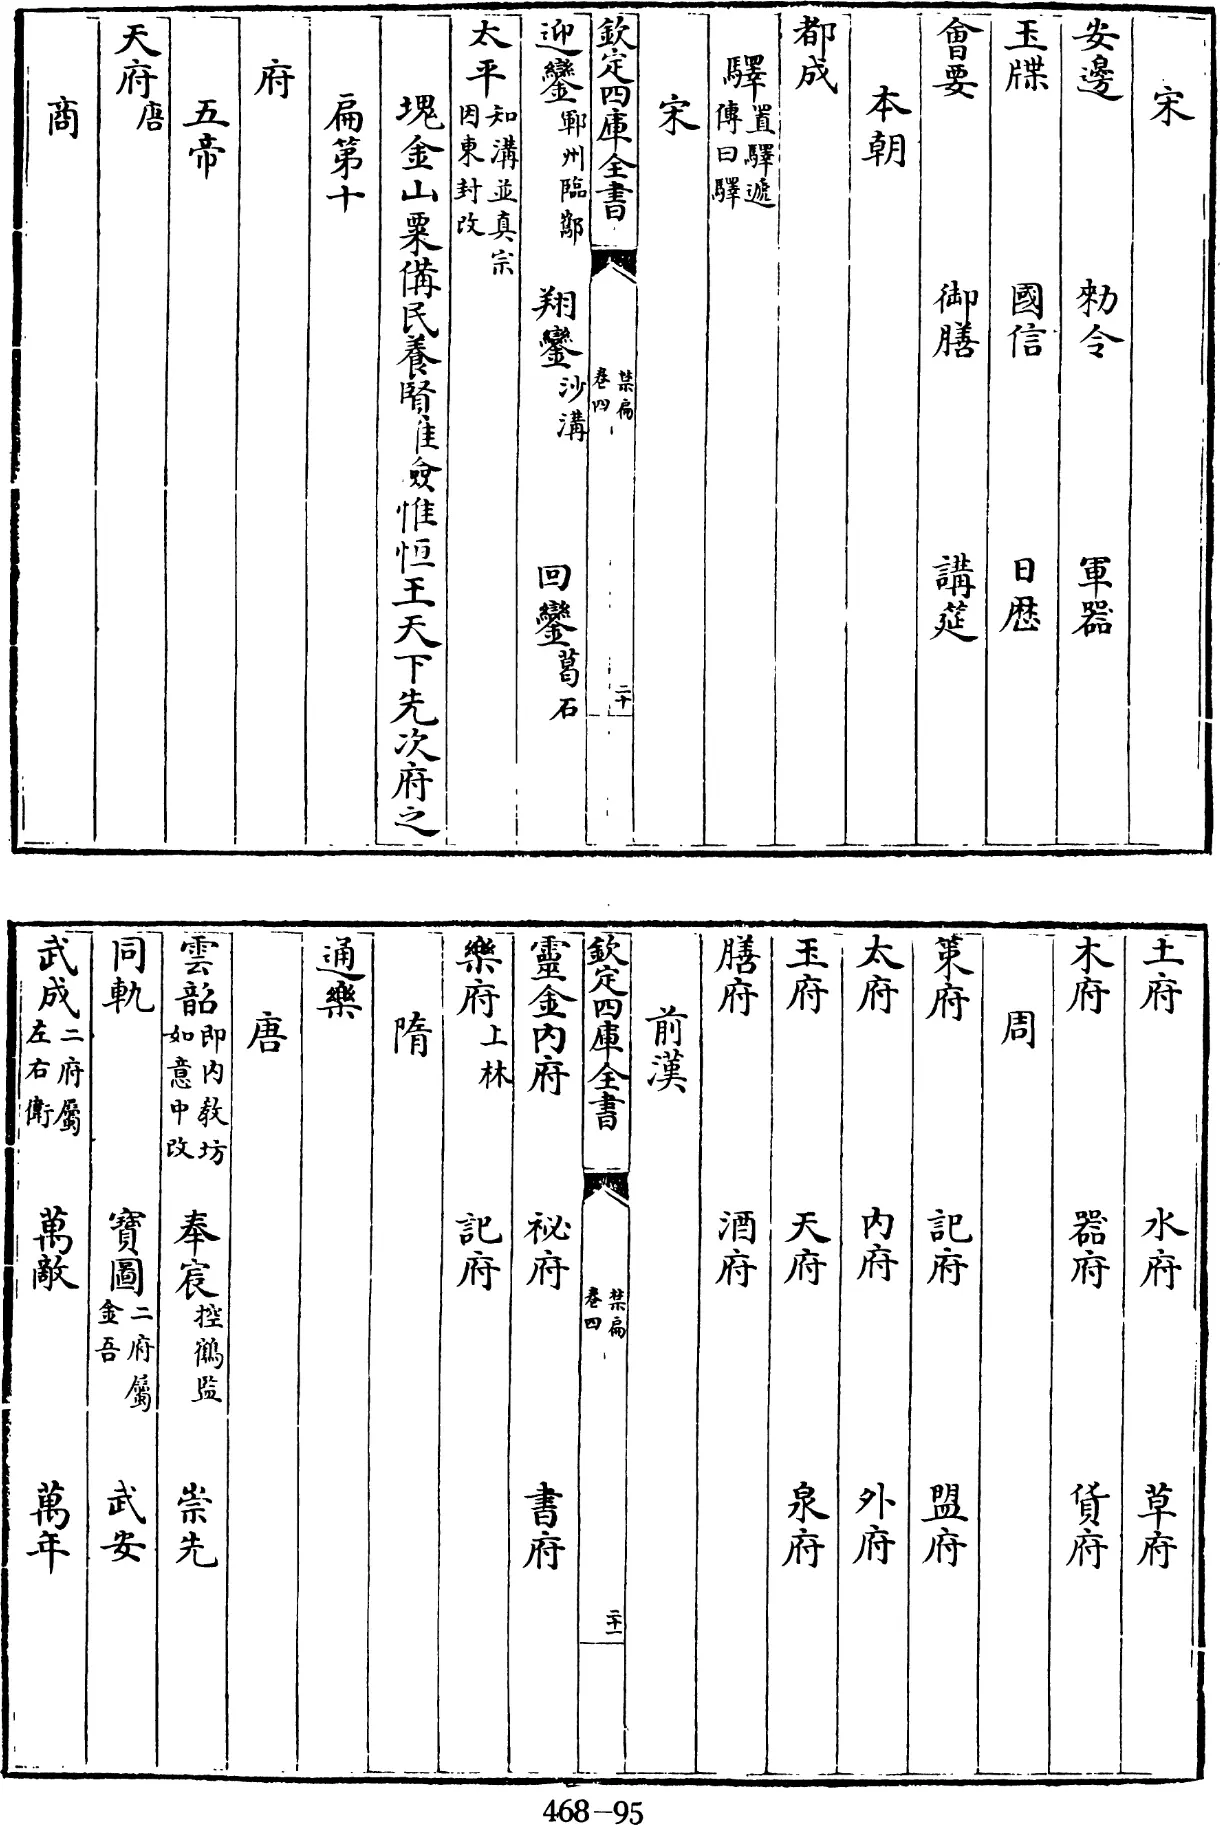 宋
安邊 勑令 軍器
玉牒 國信 日厯
會要 御膳 講筵
本朝
都成
驛置驛遞傳曰驛
宋
欽定四庫全書 禁扁卷四 二十
迎鑾鄆州臨鄒 翔鑾沙溝 回鑾葛石
太平知溝並真宗因東封改
塊金山粟備民養賢隹僉惟恒王天下先次府之
扁第十
府
五帝
天府唐
商
土府 水府 草府
木府 器府 貨府
周
策府 記府 盟府
太府 内府 外府
玉府 天府 泉府
膳府 酒府
前漢
欽定四庫全書 禁扁卷四 二十一
靈金内府 祕府 書府
樂府上林 記府
隋
通樂
唐
雲韶即内教坊如意中改 奉宸控鶴監 崇先
同軌 寳圖二府屬金吾 武安
武成二府屬左右衛 萬敵 萬年
468-95